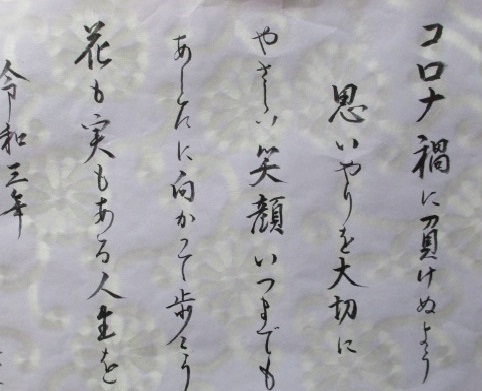 コロナ禍に負けぬよう
思いやりを大切に
やさしい笑顔いつまでも
あしたに向かって歩こう
花も実もある人生を
令和三年